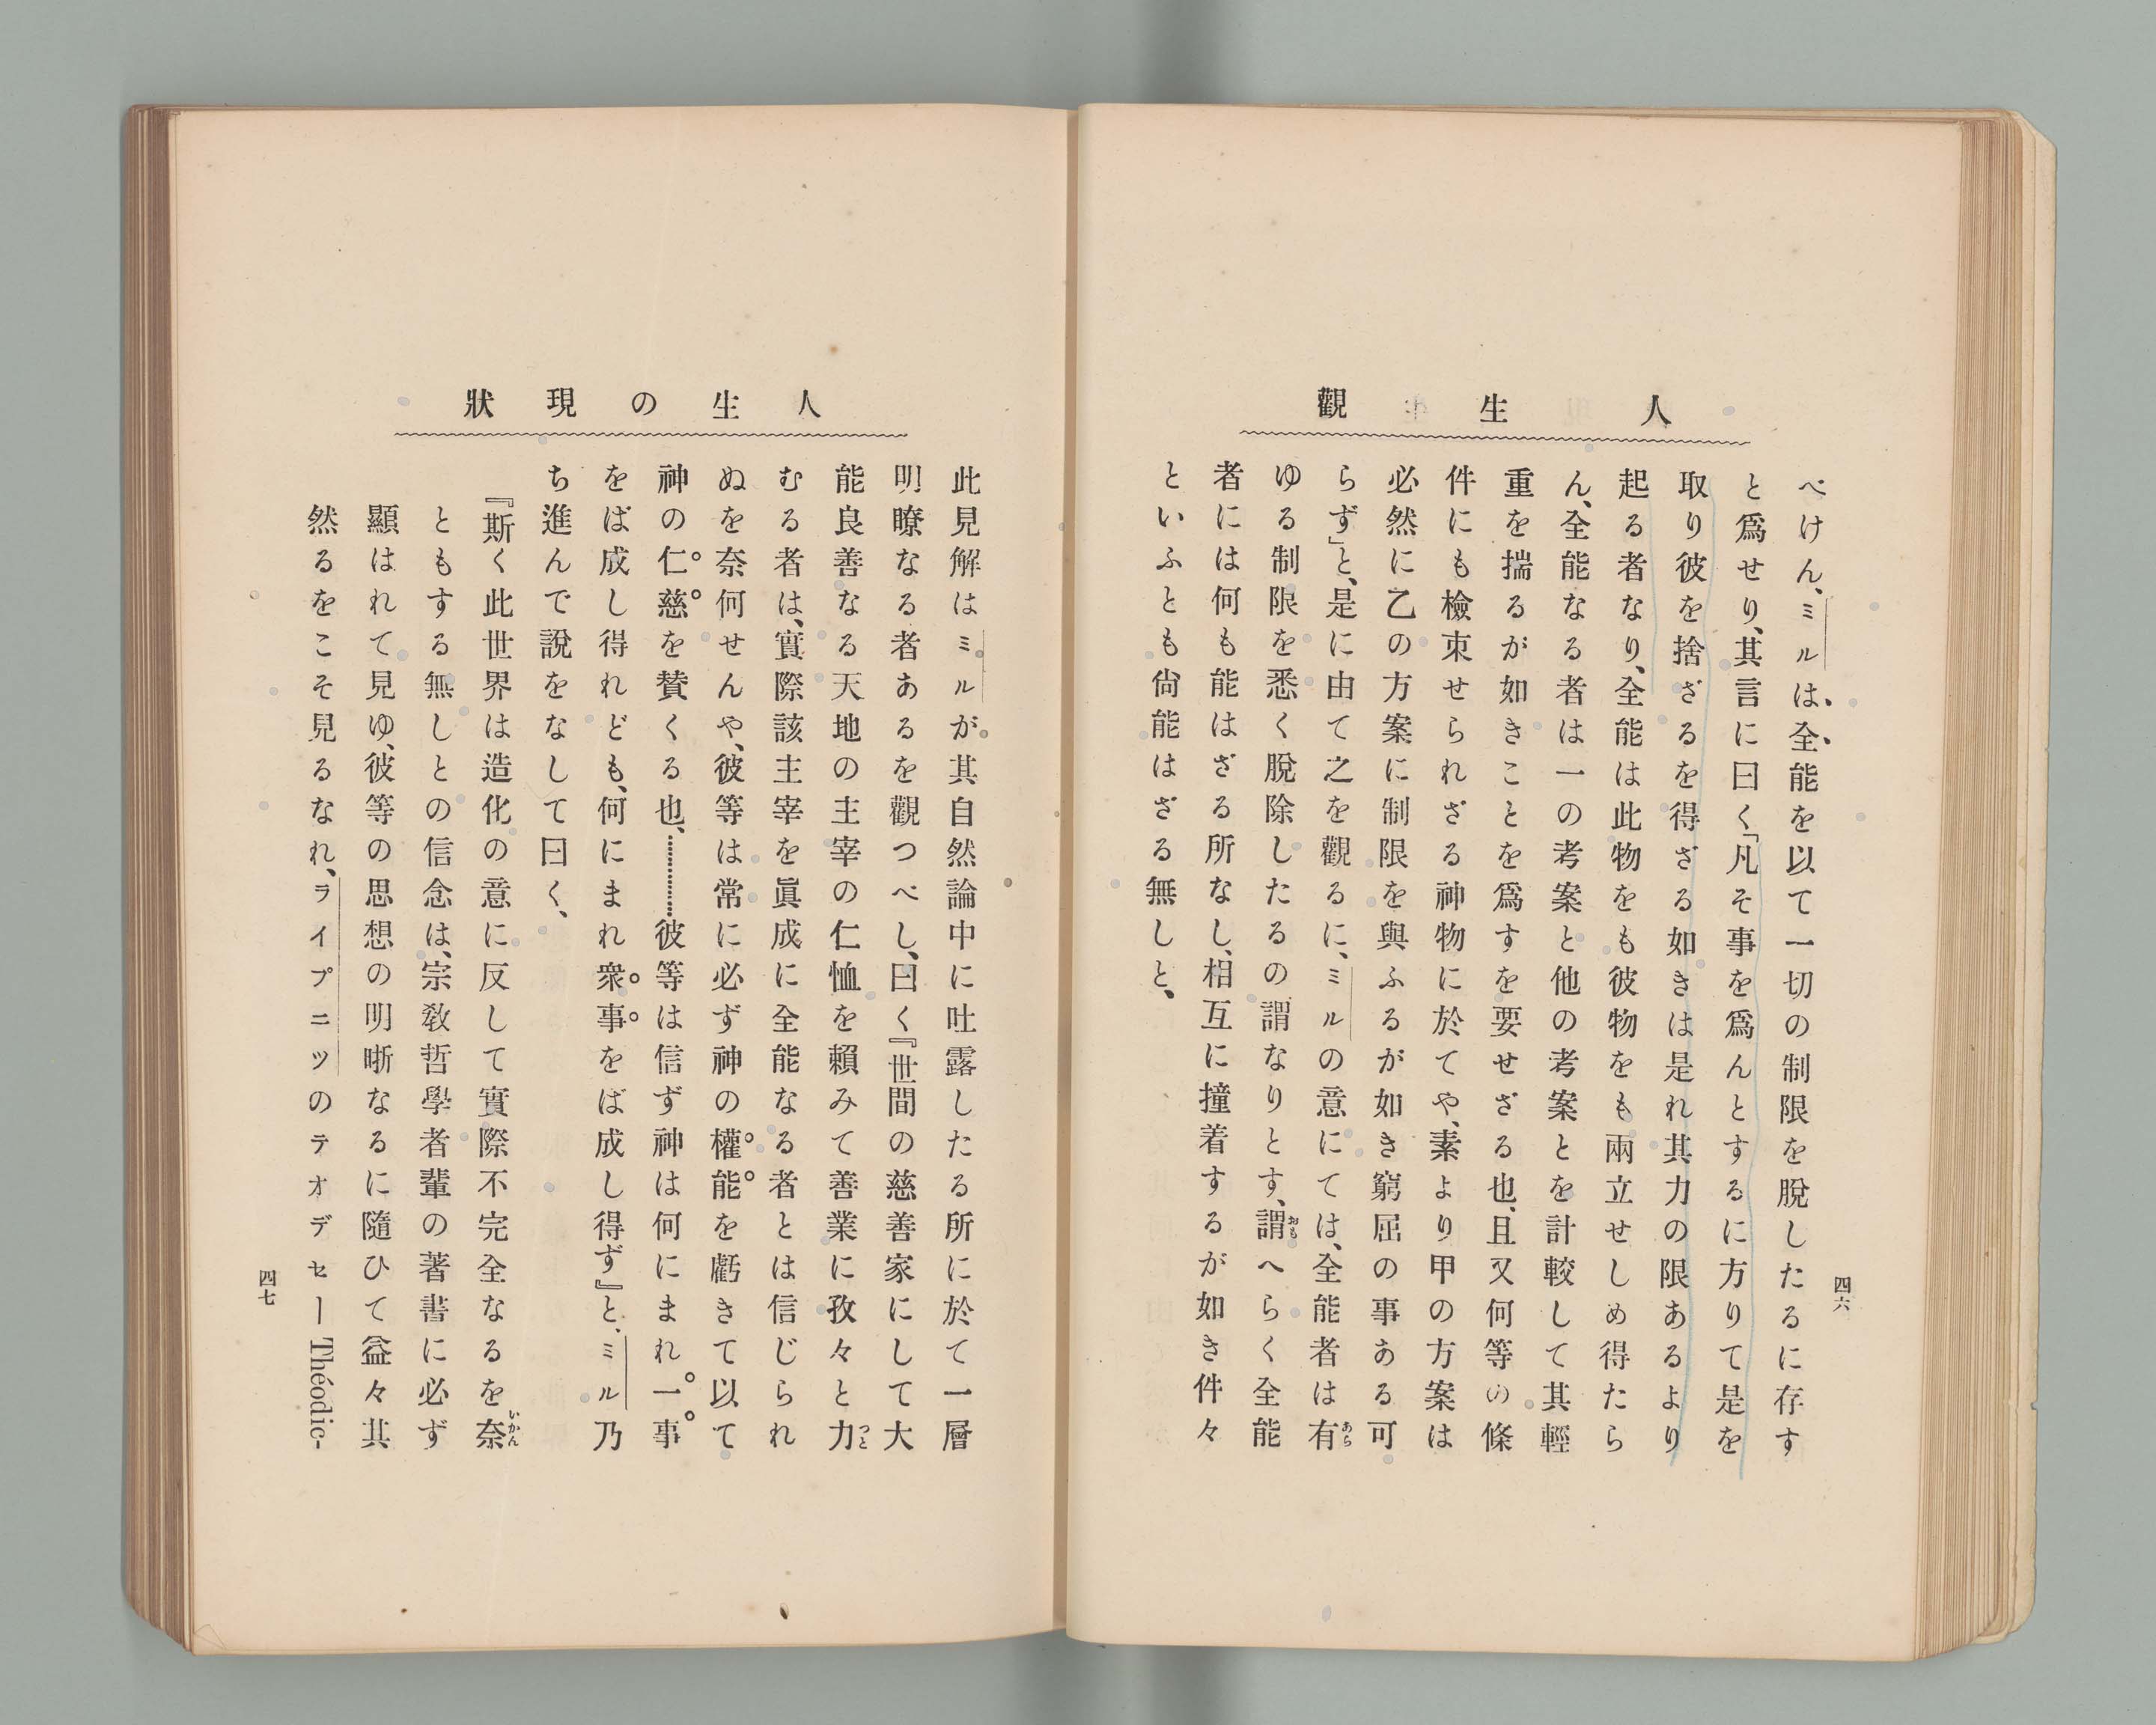 人生觀
べけん、ミルは、全能を以て一切の制限を脫したるに存す
と爲せり、其言に曰く「凡そ事を爲んとするに方りて是を
取り彼を捨ざるを得ざる如きは是れ其力の限あるより
起る者なり、全能は此物をも彼物をも兩立せしめ得たら
ん、全能なる者は一の考案と他の考案とを計較して其輕
重を揣るが如きことを爲すを要せざる也、且又何等の條
件にも檢束せられざる神物に於てや、素より甲の方案は
必然に乙の方案に制限を與ふるが如き窮屈の事ある可
らず」と、是に由て之を觀るに、ミルの意にては、全能者は有
ゆる制限を悉く脫除したるの謂なりとす、謂へらく全能
者には何も能はざる所なし、相互に撞着するが如き件々
といふとも尙能はざる無しと、
四六
人生の現狀
此見解はミルが其自然論中に吐露したる所に於て一層
明瞭なる者あるを觀つべし、曰く『世間の慈善家にして大
能良善なる天地の主宰の仁恤を賴みて善業に孜々と力
むる者は、實際該主宰を眞成に全能なる者とは信じられ
ぬを奈何せんや、彼等は常に必ず神の權能を虧きて以て
神の仁慈を賛くる也、…………彼等は信ず神は何にまれ一事
をば成し得れども、何にまれ衆事をば成し得ず』と、ミル乃
ち進んで說をなして曰く、
『斯く此世界は造化の意に反して實際不完全なるを奈
ともする無しとの信念は、宗敎哲學者輩の著書に必ず
顯はれて見ゆ、彼等の思想の明晰なるに隨ひて益々其
然るをこそ見るなれ、ライプニツのテオデセー Théodic-
四七